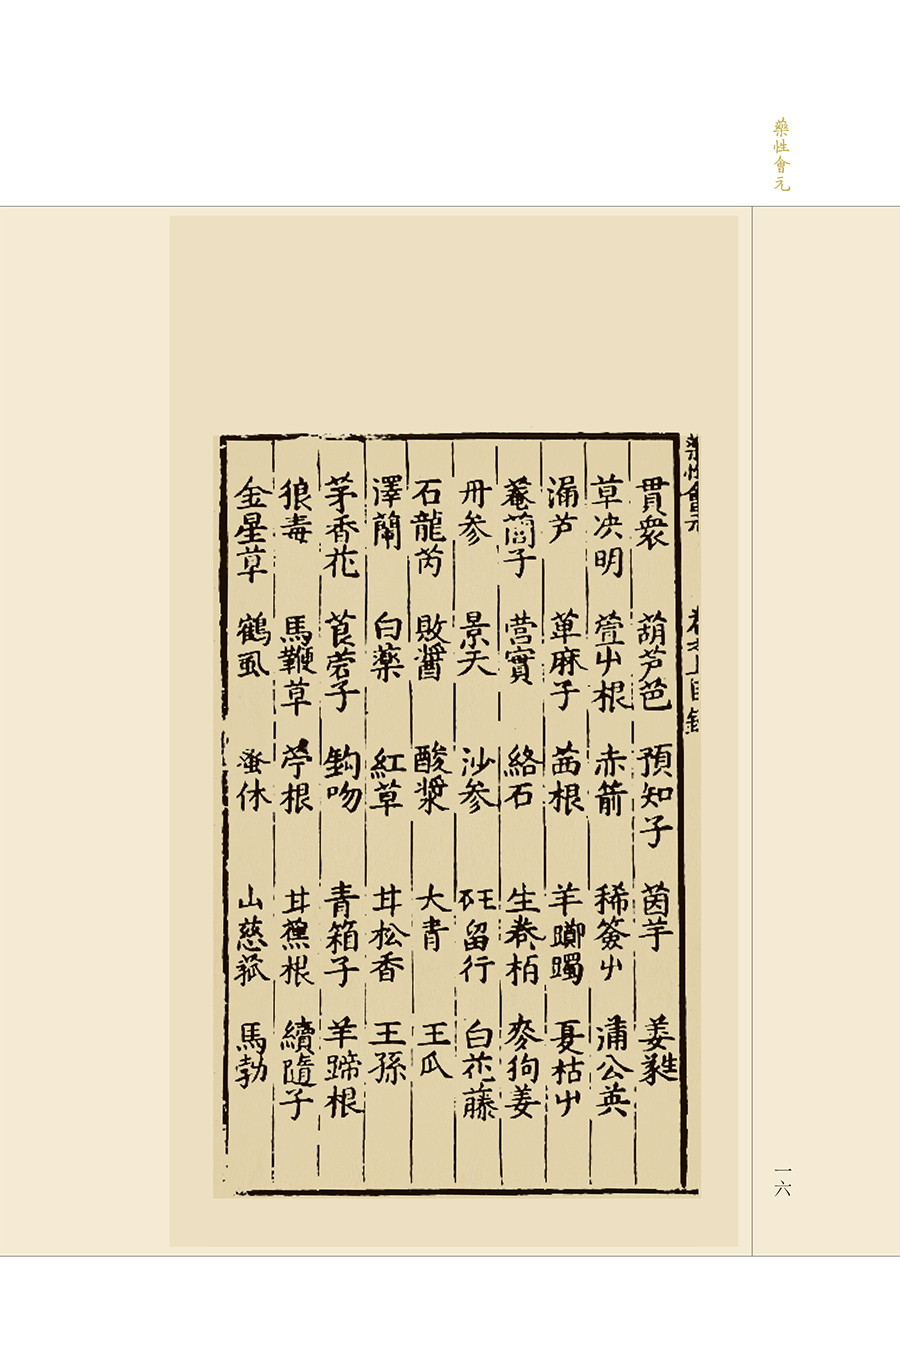 藥性會元
貫衆 葫芦笆 預知子 茵芋 姜蕤
草决明 萱屮根 赤箭 稀簽屮 蒲公英
漏芦 萆麻子 茜根 羊躑躅 夏枯屮
菴䕡子 营實 絡石 生卷柏 麥狗姜
丹参 景天 沙参 王留行 白花藤
石龍芮 敗醬 酸漿 大青 王瓜
澤蘭 白藥 紅草 甘松香 王孫
茅香花 莨菪子 鈎吻 青箱子 羊蹄根
狼毒 馬鞭草 苧根 甘蕉根 續隨子
金星草 鶴虱 蚤休 山慈菰 馬勃
一六